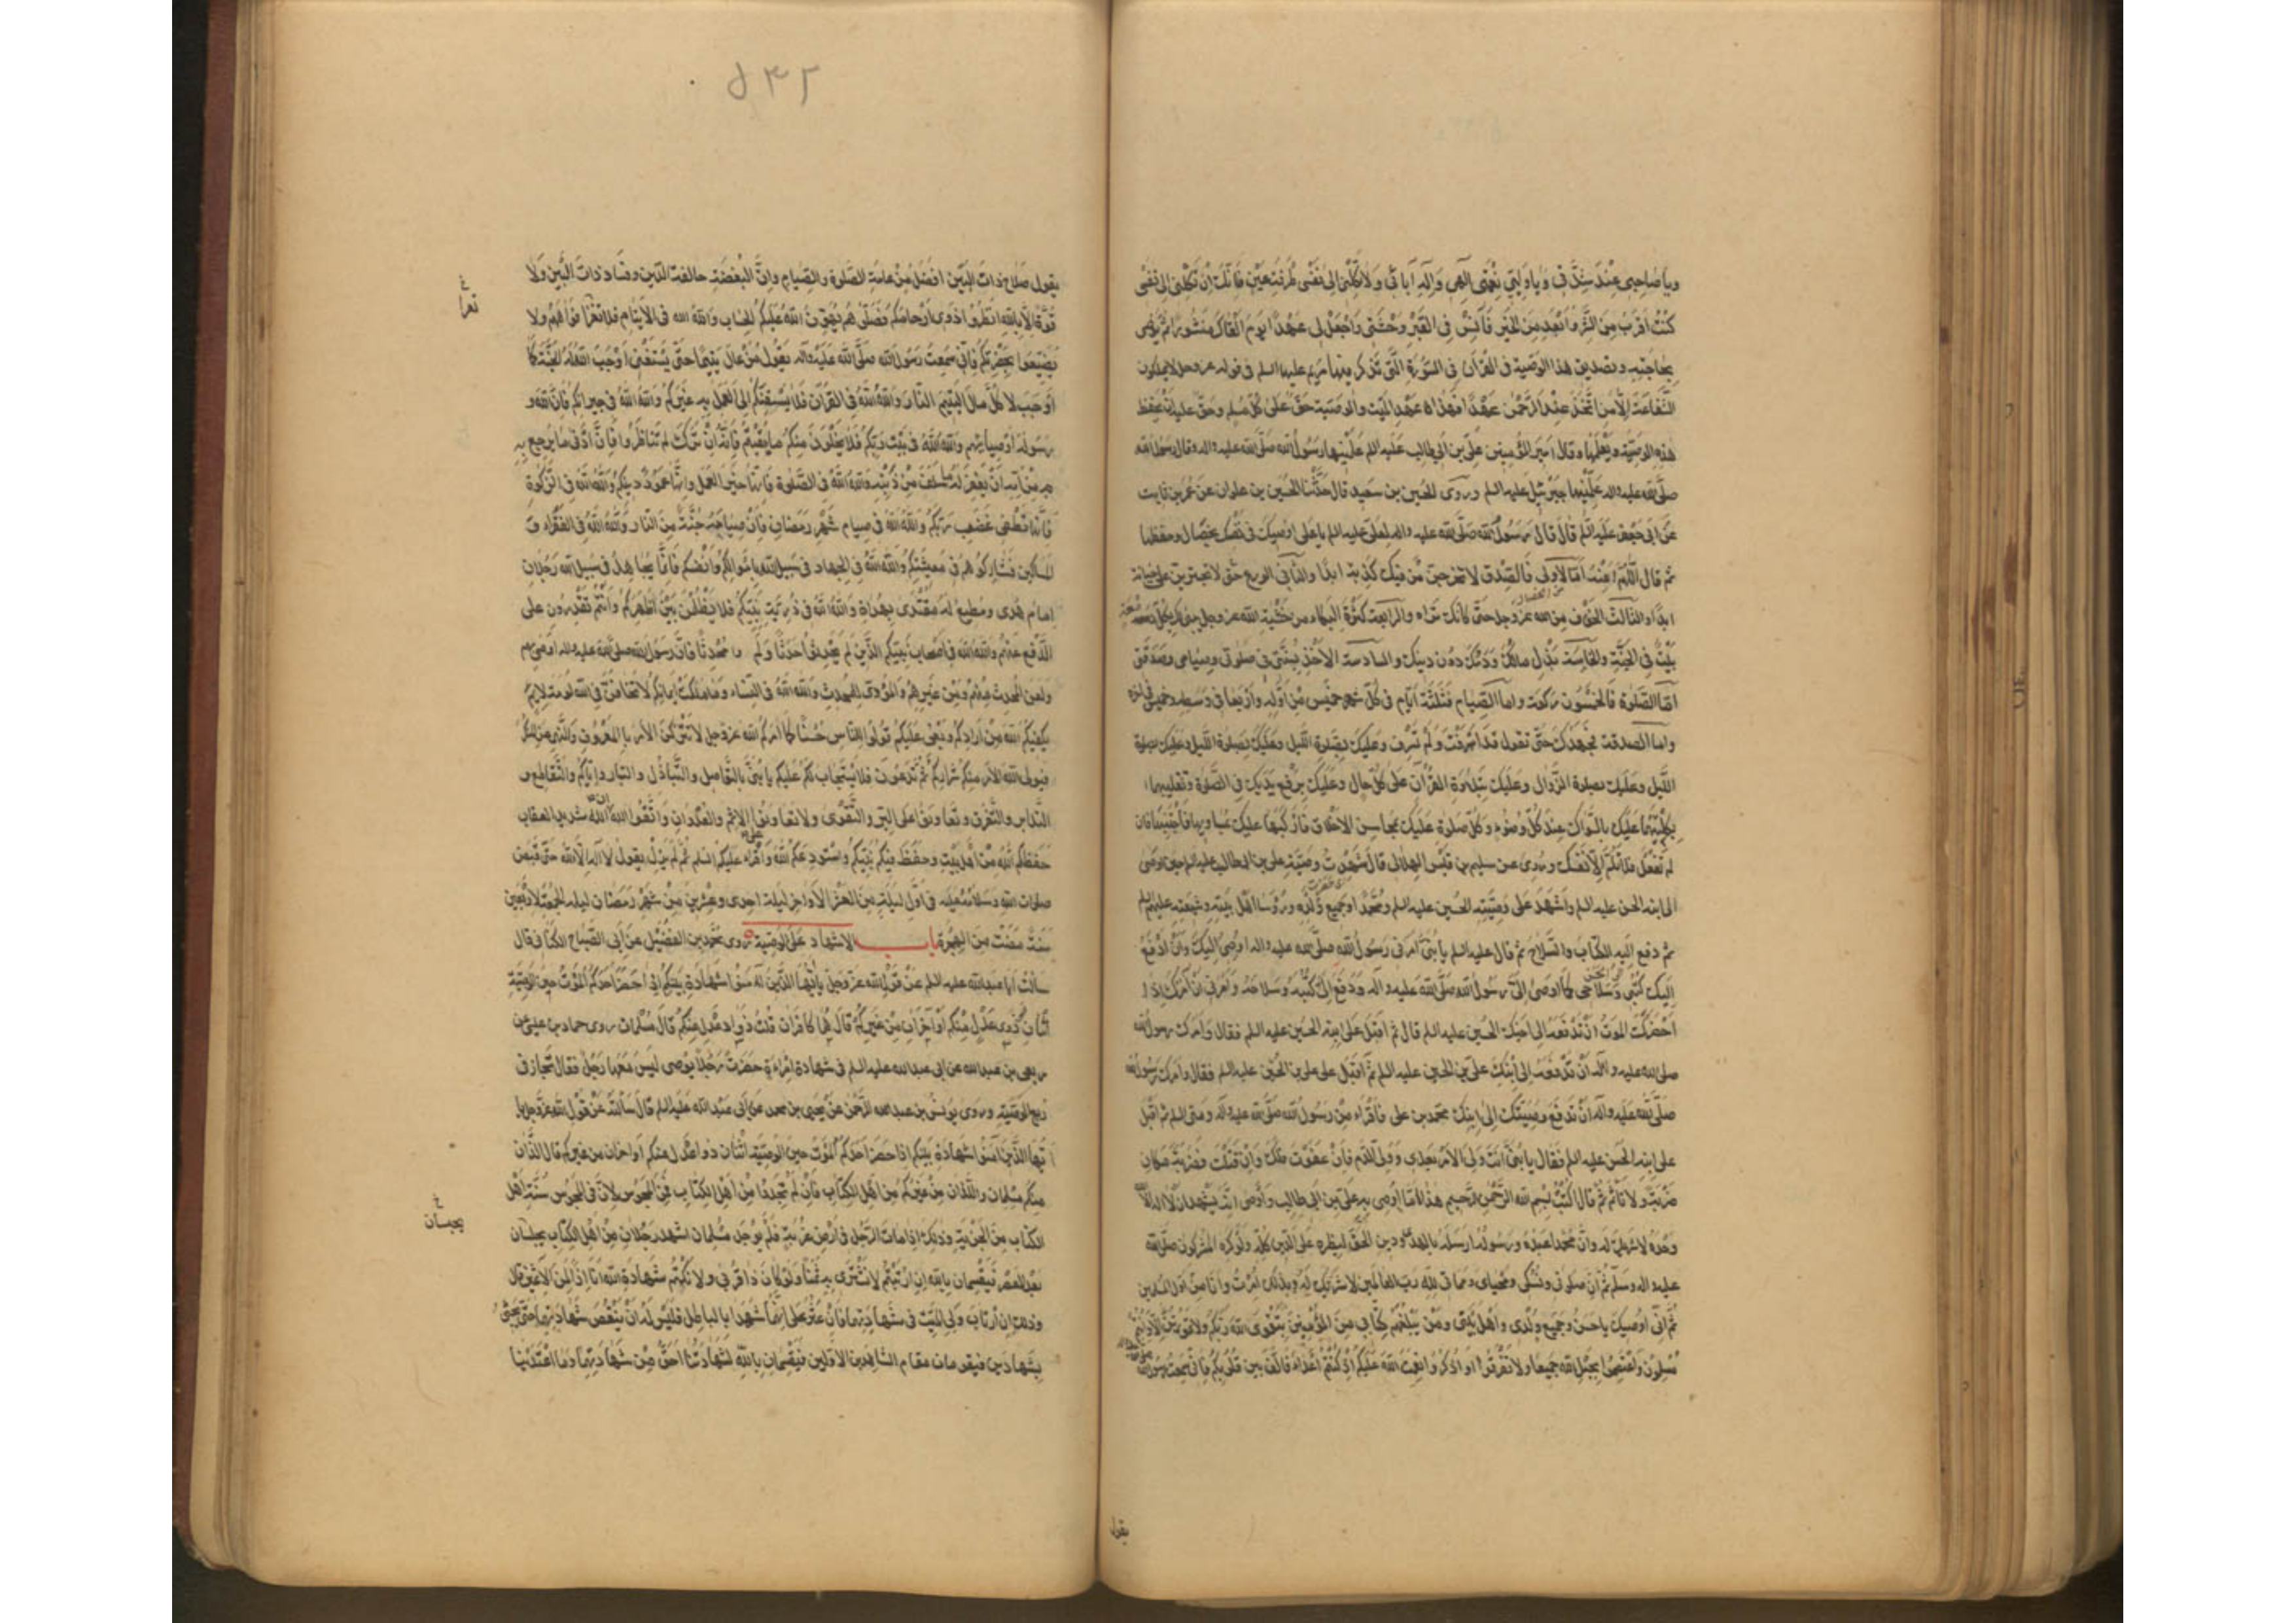 ويا صاحبى عند شدتى ويا وليى فى نعمتى الهى واله آبائى ولا تكلنى الى نفسى طرفة عين فانك ان تكلنى الى نفسى
كنت اقرب من الشر وابعد من الخير فآنس فى القبر وحشتى واجعل لى عهدا يوم القاك منشورا ثم يوصى
بحاجته وتصديق هذا الوصية فى القرآن فى السورة التى تذكر فيها مريم عليها السلم فى قوله عز وجل لا يملكون
الشفاعة الا من اتخذ عند الرحمن عهدا فهذا عهد الميت والوصية حق على كل مسلم وحق عليه ان يحفظ
هذه الوصية ويعلمها وقال امير المؤمنين على بن ابى طالب عليه السلم علمنيها رسول الله صلى الله عليه واله وقال رسول الله
صلى الله عليه واله علمنيها جبرئيل عليه السلم وروى الحسين بن سعيد قال حدثنا الحسين بن علوان عن عمرو بن ثابت
عن ابى جعفر عليه السلم قال قال رسول الله صلى الله عليه واله لعلى عليه السلم يا على اوصيك فى نفسك بخصال فاحفظها
ثم قال اللهم اعنه اما الاولى فالصدق لا تخرجن من فيك كذبة ابدا والثانى الورع حتى لا تجترئن على خيانة
ابدا والثالث الخوف من الله عز وجل حتى كانك تراه والرابعة كثرة البكاء من خشية الله عز وجل يبنى لك بكل دمعة
بيت فى الجنة والخامسة بذل مالك ودمك دون دينك والسادسة الاخذ بسنتى فى صلوتى وصيامى وصدقتى
اما الصلوة فالخمسون ركعة واما الصيام فثلثة ايام فى كل شهر خميس من اوله واربعا فى وسطه وخميس فى اخره
واما الصدقة فجهدك حتى تقول قد اسرفت ولم تسرف وعليك بصلوة الليل وعليك بصلوة الليل وعليك بصلوة
الليل وعليك بصلوة الزوال وعليك بتلاوة القرآن على كل حال وعليك برفع يديك فى الصلوة وتقليبهما
بكلتيهما عليك بالسواك عند كل وضوء وكل صلوة عليك بمحاسن الاخلاق فاركبها عليك بمساويها فاجتنبها فان
لم تفعل فلا تلم الا نفسك وروى عن سليم بن قيس الهلالى قال شهدت وصية على بن ابى طالب عليه السلم حين اوصى
الى ابنه الحسن عليه السلم واشهد على وصيته الحسين عليه السلم ومحمدا وجميع ولده ورؤسا اهل بيته وشيعته عليهم السلم
ثم دفع اليه الكتاب والسلاح ثم قال عليه السلم يا بنى امرنى رسول الله صلى الله عليه واله ان اوصى اليك وان ادفع
اليك كتبى وسلاحى كما اوصى الى رسول الله صلى الله عليه وآله ودفع الى كتبه وسلاحه وامرنى ان آمرك اذا
احضرك الموت ان تدفعه الى اخيك الحسين عليه السلم قال ثم اقبل على ابنه الحسين عليه السلم فقال وامرك رسول الله
صلى الله عليه وآله ان تدفعه الى ابنك على بن الحسين عليه السلم ثم اقبل على على بن الحسين عليه السلم فقال وامرك رسول الله
صلى الله عليه وآله ان تدفع وصيتك الى ابنك محمد بن على فاقراه من رسول الله صلى الله عليه وآله ومنى السلم ثم اقبل
على ابنه الحسن عليه السلم فقال يا بنى انت ولى الامر بعدى وولى الدم فان عفوت فلك وان قتلت فضربة مكان
ضربة ولا تاثم ثم قال اكتب بسم الله الرحمن الرحيم هذا ما اوصى به على بن ابى طالب واوصى انه يشهد ان لا اله الا الله
وحده لا شريك له وان محمدا عبده ورسوله ارسله بالهدى ودين الحق ليظهره على الدين كله ولو كره المشركون صلى الله
عليه واله وسلم ثم ان صلوتى ونسكى ومحياى ومماتى لله رب العالمين لا شريك له وبذلك امرت وانا من اول المسلمين
ثم انى اوصيك يا حسن وجميع ولدى واهل بيتى ومن بلغهم كتابى من المؤمنين بتقوى الله ربكم ولا تموتن الا وانتم
مسلمون واعتصموا بحبل الله جميعا ولا تفرقوا واذكروا نعمت الله عليكم اذ كنتم اعداء فالف بين قلوبكم فانى سمعت رسول الله
يقول
٥٣٢
يقول صلاح ذات البين افضل من عامة الصلوة والصيام وان البغضة حالقة الدين وفساد ذات البين ولا
قوة الا بالله انظروا ذوى ارحامكم فصلوهم يهون الله عليكم الحساب والله الله فى الايتام فلا تغروا افواههم ولا
يضيعوا بحضرتكم فانى سمعت رسول الله صلى الله عليه واله يقول من عال يتيما حتى يستغنى اوجب الله له الجنة كما
اوجب لآكل مال اليتيم النار والله الله فى القرآن فلا يسبقنكم الى العمل به غيركم والله الله فى جيرانكم فان الله و
رسوله اوصيا بهم والله الله فى بيت ربكم فلا يخلون منكم ما بقيتم فانه ان ترك لم تناظروا فان ادنى ما يرجع به
من امه ان يغفر له ما سلف من ذنبه والله الله فى الصلوة فانها خير العمل وانها عمود دينكم والله الله فى الزكوة
فانها تطفى غضب ربكم والله الله فى صيام شهر رمضان فان صيامه جنة من النار والله الله فى الفقراء و
المساكين فشاركوهم فى معيشتكم والله الله فى الجهاد فى سبيل الله باموالكم وانفسكم فانما يجاهد فى سبيل الله رجلان
امام هدى ومطيع له مقتدى بهداه والله الله فى ذرية نبيكم فلا يظلمن بين اظهركم وانتم تقدرون على
الدفع عنهم والله الله فى اصحاب نبيكم الذين لم يحدثوا حدثا ولم يؤوا محدثا فان رسول الله صلى الله عليه واله اوصى بهم
ولعن المحدث منهم ومن غيرهم والمؤوى للمحدث والله الله فى النساء وما ملكت ايمانكم لا تخافن فى الله لومة لائم
يكفيكم الله من ارادكم وبغى عليكم قولوا للناس حسنا كما امركم الله عز وجل لا تتركن الامر بالمعروف والنهى عن المنكر
فيولى الله الامر منكم شراركم ثم تدعون فلا يستجاب لكم عليكم يا بنى بالتواصل والتباذل والتبار واياكم والتقاطع و
التدابر والتفرق وتعاونوا على البر والتقوى ولا تعاونوا على الاثم والعدوان واتقوا الله ان الله شديد العقاب
حفظكم الله من اهل بيت وحفظ فيكم نبيكم واستودعكم الله واقراء عليكم السلم ثم لم يزل يقول لا اله الا الله حتى قبض
صلوات الله وسلامه عليه فى اول ليلة من العشر الاواخر ليلة احدى وعشرين من شهر رمضان ليلة الجمعة لاربعين
سنة مضت من الهجرة باب الاشهاد على الوصية روى محمد بن الفضيل عن ابى الصباح الكنانى قال
سالت ابا عبد الله عليه السلم عن قول الله عز وجل يا ايها الذين آمنوا شهادة بينكم اذا حضر احدكم الموت حين الوصية
اثنان ذوى عدل منكم او آخران من غيركم قال هما كافران قلت ذوا عدل منكم قال مسلمان روى حماد بن عيسى عن
ربعى بن عبد الله عن ابى عبد الله عليه السلم فى شهادة امراءة حضرت رجلا يوصى ليس معها رجل فقال تجاز فى
ربع الوصية وروى يونس بن عبد الرحمن عن يحيى بن محمد عن ابى عبد الله عليه السلم قال سالته عن قول الله عز وجل يا
ايها الذين آمنوا شهادة بينكم اذا حضر احدكم الموت حين الوصية اثنان ذوا عدل منكم او اخران من غيركم قال اللذان
منكم مسلمان واللذان من غيركم من اهل الكتاب فان لم تجدوا من اهل الكتاب فمن المجوس لان فى المجوس سنة اهل
الكتاب من الجزية وذلك اذا مات الرجل فى ارض غربة فلم يوجد مسلمان اشهد رجلان من اهل الكتاب يحبسان
بعد العصر فيقسمان بالله ان ارتبتم لا نشترى به ثمنا ولو كان ذا قربى ولا نكتم شهادة الله انا اذا لمن الاثمين قال
وذلك ان ارتاب ولى الميت فى شهادتهما فان عثر على انهما شهدا بالباطل فليس له ان ينقض شهادتهما حتى يجئ
بشهادين فيقومان مقام الشاهدين الاولين فيقسمان بالله لشهادتنا احق من شهادتهما وما اعتدينا
تعرا
يحبسان